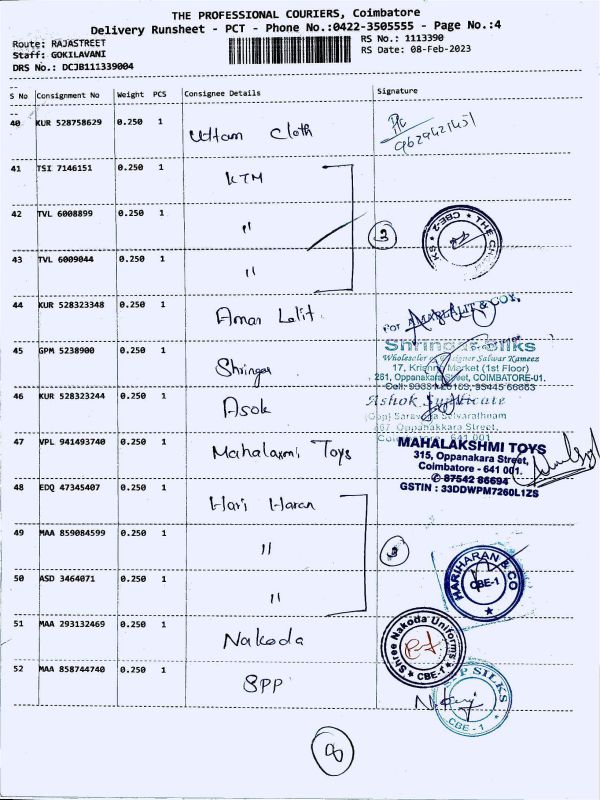 THE PROFESSIONAL COURIERS, Coimbatore
Delivery Runsheet - PCT - Phone No.:0422-3505555 - Page No.:4
Route: RAJASTREET
Staff: GOKILAVANI
DRS No.: DCJB111339004
RS No.: 1113390
RS Date: 08-Feb-2023
S No Consignment No Weight PCS Consignee Details Signature
40 KUR 528758629 0.250 1 Uttam Cloth
9629421451
41 TSI 7146151 0.250 1 KTM
42 TVL 6008899 0.250 1 "
3
CBE-2 ★ THE CHE
43 TVL 6009044 0.250 1 "
44 KUR 528323348 0.250 1 Amar Lalit.
For AMARLALIT & COY,
45 GPM 5238900 0.250 1 Shringar
Shringar Silks
Wholesaler Designer Salwar Kameez
17, Krishna Market (1st Floor)
281, Oppanakara Street, COIMBATORE-01.
46 KUR 528323244 0.250 1 Asok
Ashok Syndicate
(Opp) Saravana Selvarathnam
Oppanakkara Street,
641 001
47 VPL 941493740 0.250 1 Mahalaxmi Toys
MAHALAKSHMI TOYS
315, Oppanakara Street,
Coimbatore - 641 001.
✆ 87542 86694
GSTIN : 33DDWPM7260L1ZS
48 EDQ 47345407 0.250 1 Hari Haran
49 MAA 859084599 0.250 1 "
3
HARIHARAN & CO
CBE-1
50 ASD 3464071 0.250 1 "
51 MAA 293132469 0.250 1 Nakoda
Shree Nakoda Uniforms
★ CBE-1 ★
52 MAA 858744740 0.250 1 SPP
SPP SILKS
CBE - 1
8